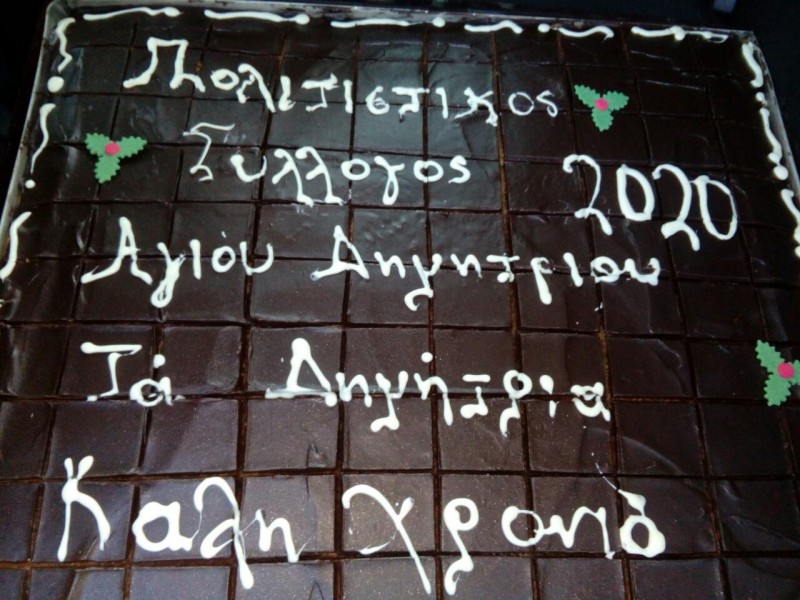 Πολιτιστικος
Συλλογος
2020
Αγιόυ Δημητριου
Τά Δημήτρια
Καλη Χρονιά